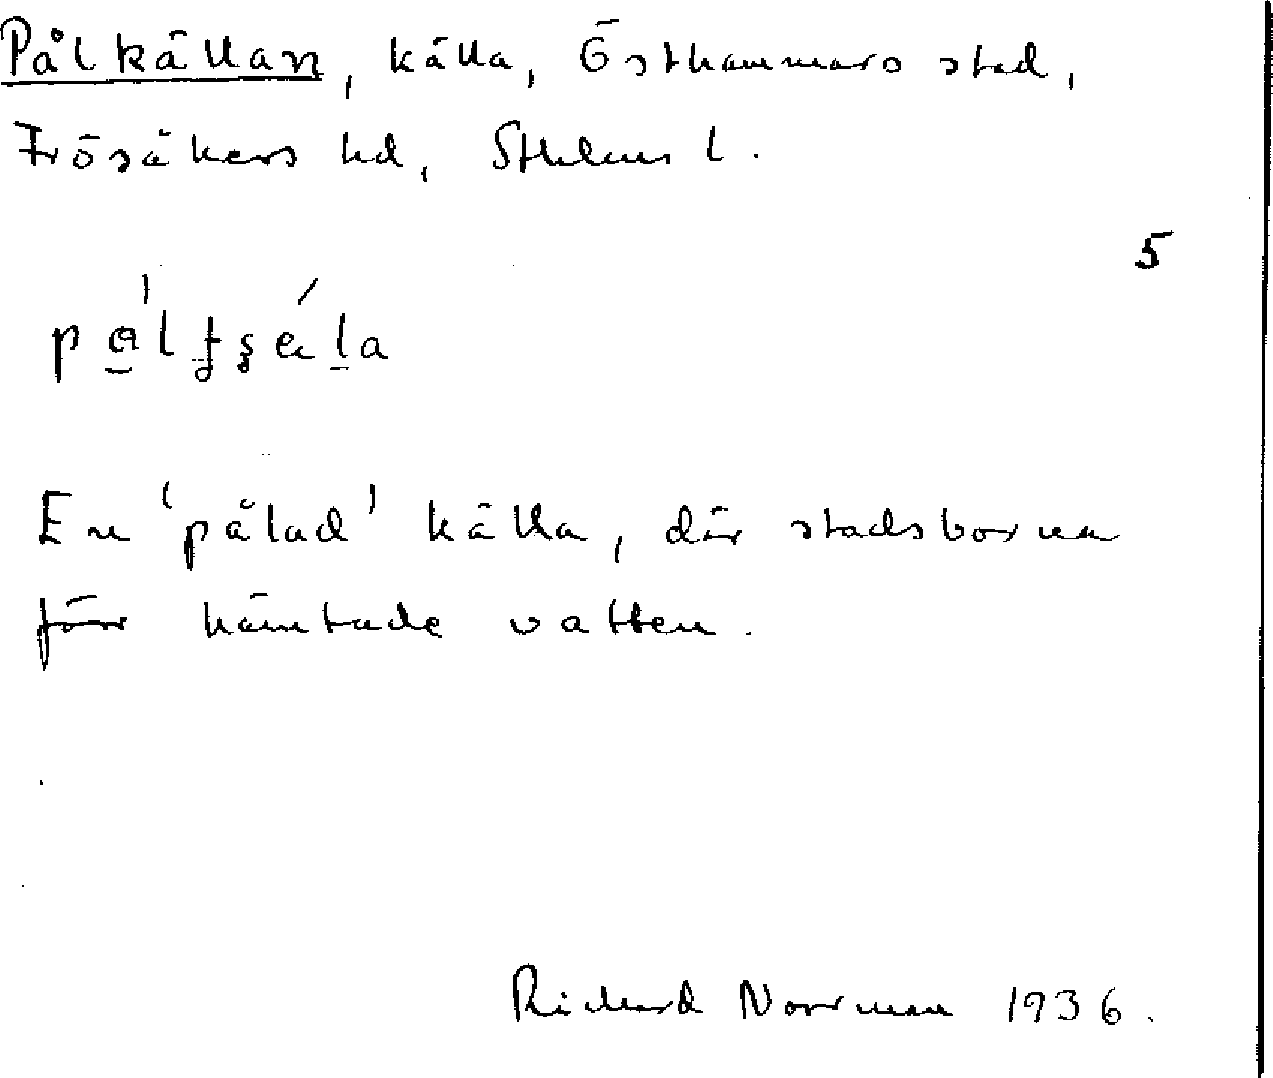 Pålkällan, källa, Östhammars stad,
Frösåkers hd, Sthlms l.
5
En 'pålad' källa, där stadsborna
förr hämtade vatten.
Richard Norrman 1936.